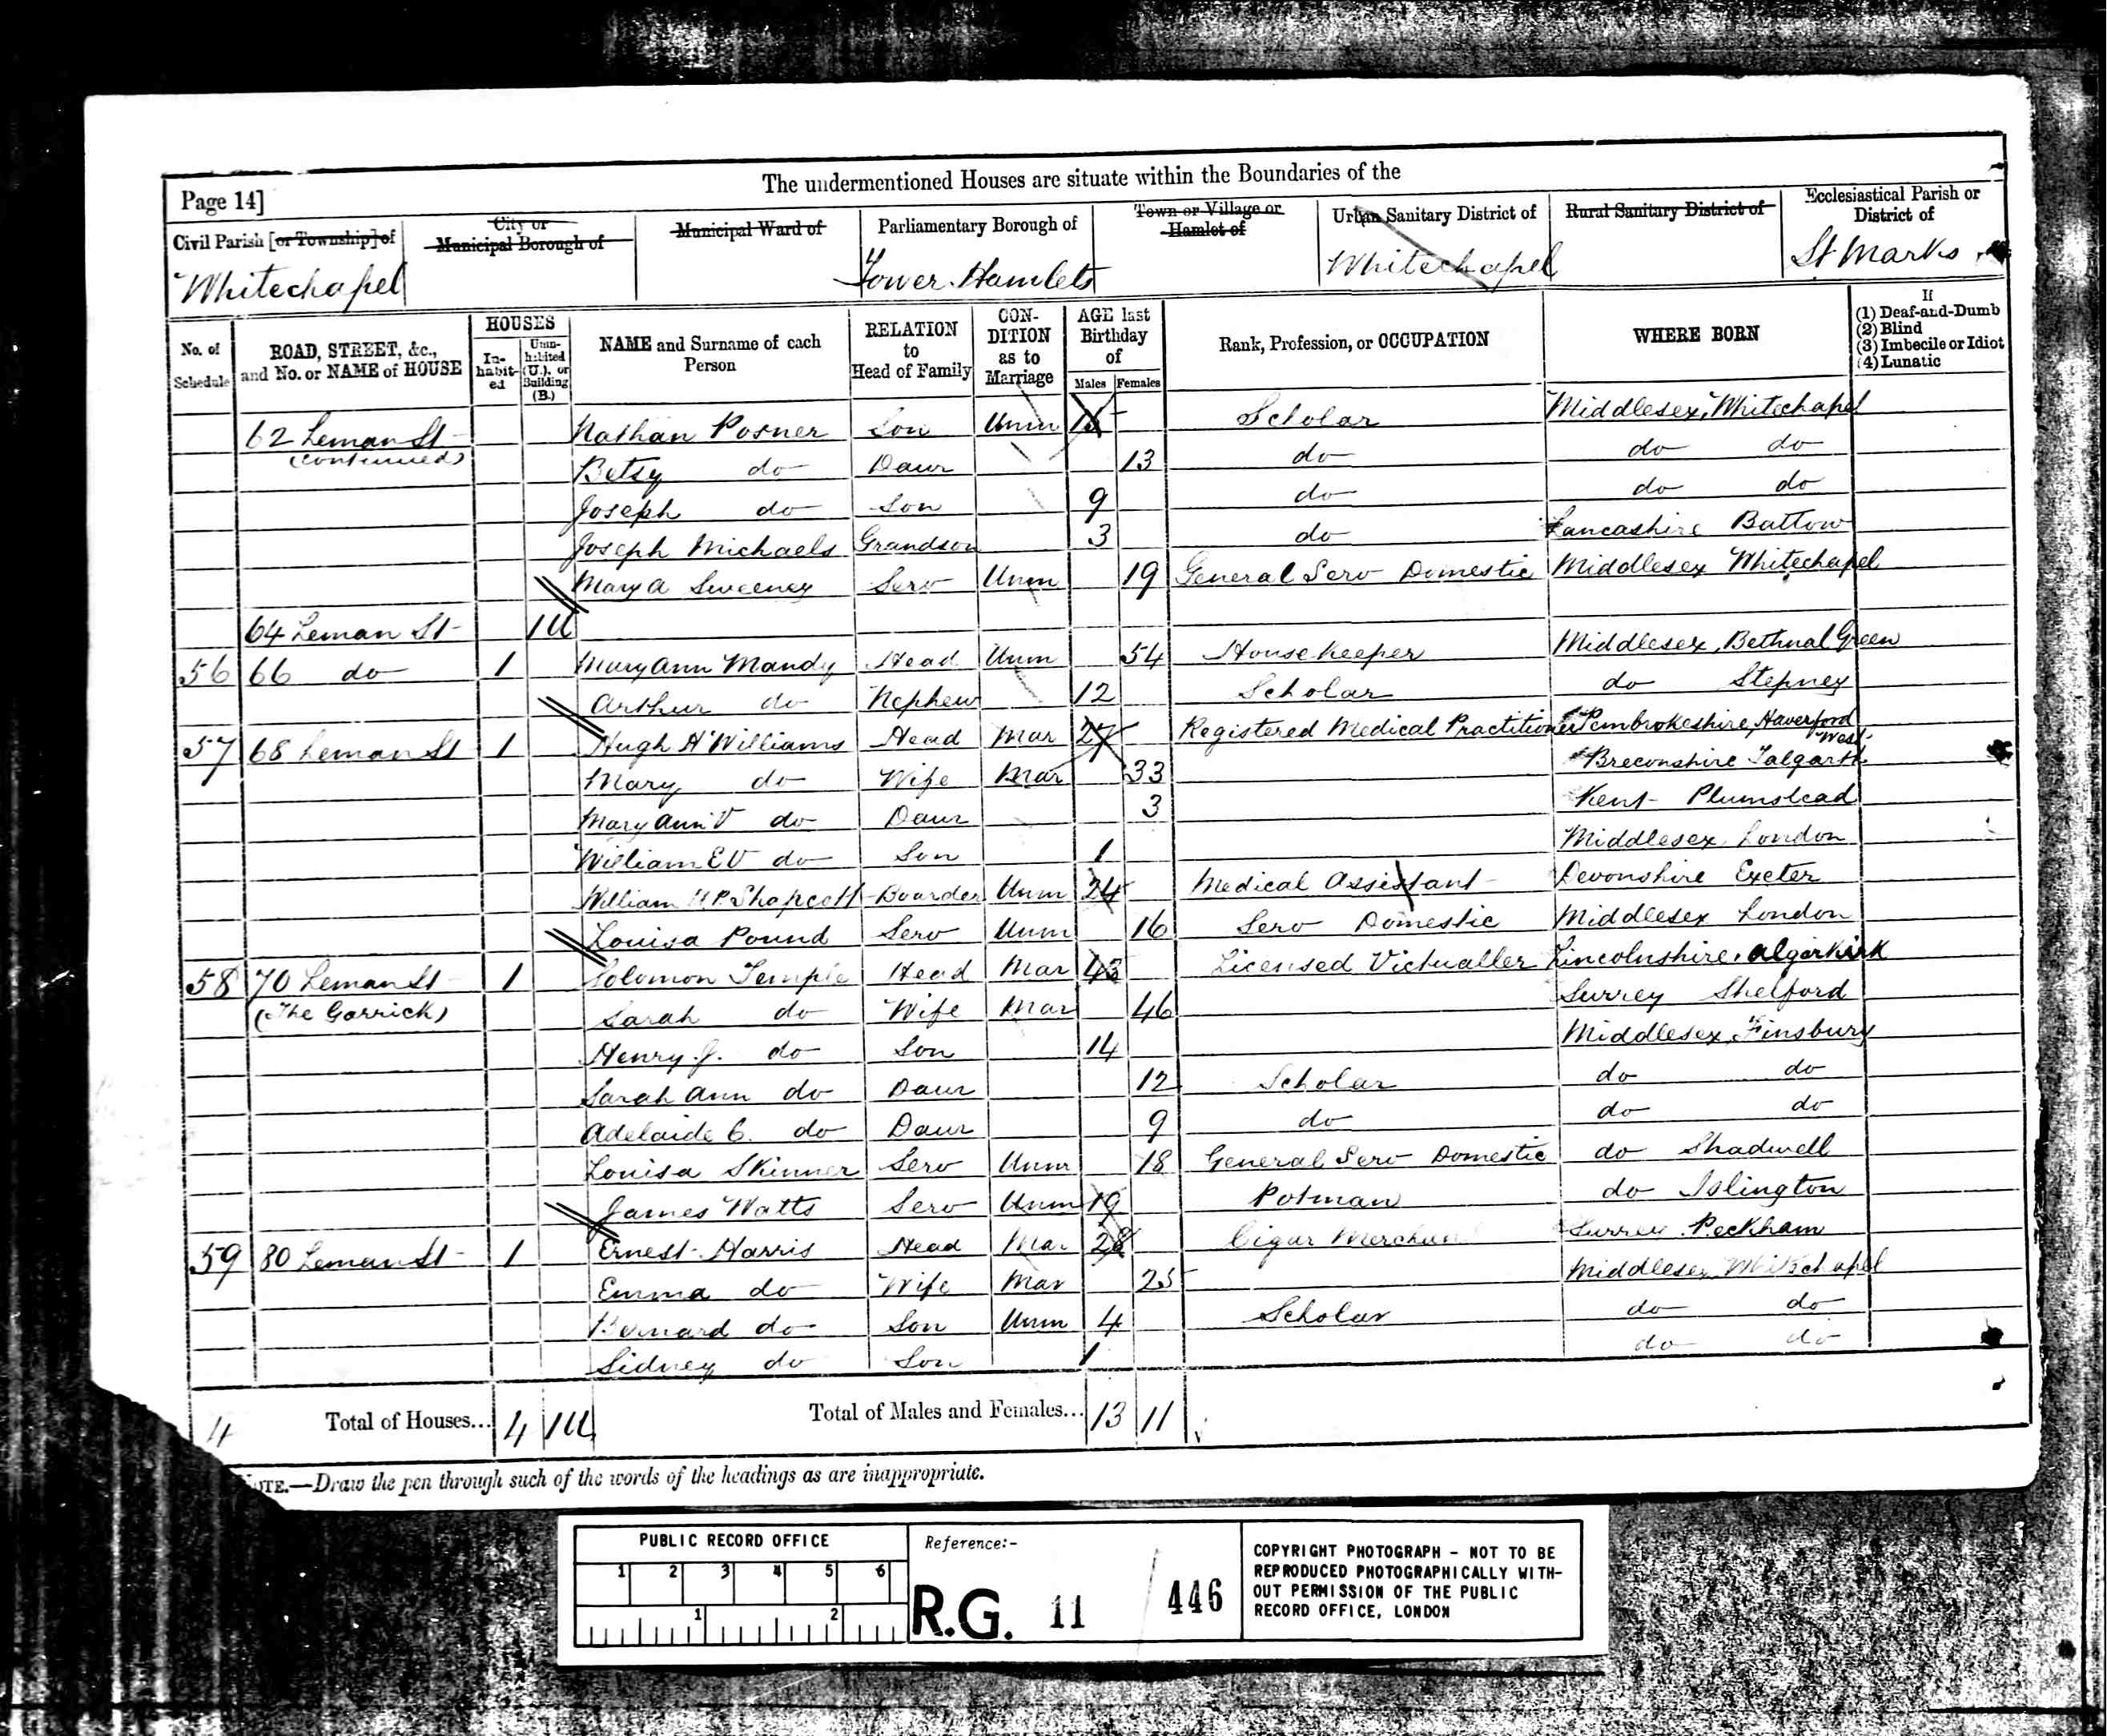 The undermentioned Houses are situate within the Boundaries of the
Page 14]
Civil Parish [or Township] of
Whitechapel
City or
Municipal Borough of
Municipal Ward of
Parliamentary Borough of
Tower Hamlets
Town or Village or
Hamlet of
Urban Sanitary District of
Whitechapel
Rural Sanitary District of
Ecclesiastical Parish or
District of
St Marks
No. of Schedule
ROAD, STREET, &c., and No. or NAME of HOUSE
HOUSES
In-habit-ed
Unin-habited (U.), or Building (B.)
NAME and Surname of each Person
RELATION to Head of Family
CON-DITION as to Marriage
AGE last Birthday of
Males Females
Rank, Profession, or OCCUPATION
WHERE BORN
If
(1) Deaf-and-Dumb
(2) Blind
(3) Imbecile or Idiot
(4) Lunatic
62 Leman St Nathan Posner Son Unm Scholar Middlesex, Whitechapel
(continued) Betsy do Daur 13 do do do
Joseph do Son 9 do do do
Joseph Michaels Grandson 3 do Lancashire
Mary A Sweeney Serv Unm 19 General Serv Domestic Middlesex Whitechapel
64 Leman St 1U
56 66 do 1 Mary Ann Mandy Head Unm 54 Housekeeper Middlesex, Bethnal Green
Arthur do Nephew 12 Scholar do Stepney
57 68 Leman St 1 Hugh H Williams Head Mar 27 Registered Medical Practitioner Pembrokeshire, Haverford West
Mary do Wife Mar 33 Breconshire Talgarth
Mary Ann V do Daur 3 Kent Plumstead
William E V do Son 1 Middlesex London
William H P Shapcott Boarder Unm 24 Medical Assistant Devonshire Exeter
Louisa Pound Serv Unm 16 Serv Domestic Middlesex London
58 70 Leman St 1 Solomon Temple Head Mar 43 Licensed Victualler Lincolnshire, Algarkirk
(The Garrick) Sarah do Wife Mar 46 Surrey Shelford
Henry J. do Son 14 Middlesex, Finsbury
Sarah Ann do Daur 12 Scholar do do
Adelaide C. do Daur 9 do do do
Louisa Skinner Serv Unm 18 General Serv Domestic do Shadwell
James Watts Serv Unm 19 Potman do Islington
59 80 Leman St 1 Ernest Harris Head Mar 28 Cigar Merchant Surrey Peckham
Emma do Wife Mar 25 Middlesex Whitechapel
Bernard do Son Unm 4 Scholar do do
Sidney do Son 1 do do
4 Total of Houses... 4 1U Total of Males and Females... 13 11
NOTE.—Draw the pen through such of the words of the headings as are inappropriate.
PUBLIC RECORD OFFICE
1 2 3 4 5 6
1 2
Reference:-
R.G. 11 / 446
COPYRIGHT PHOTOGRAPH - NOT TO BE
REPRODUCED PHOTOGRAPHICALLY WITH-
OUT PERMISSION OF THE PUBLIC
RECORD OFFICE, LONDON